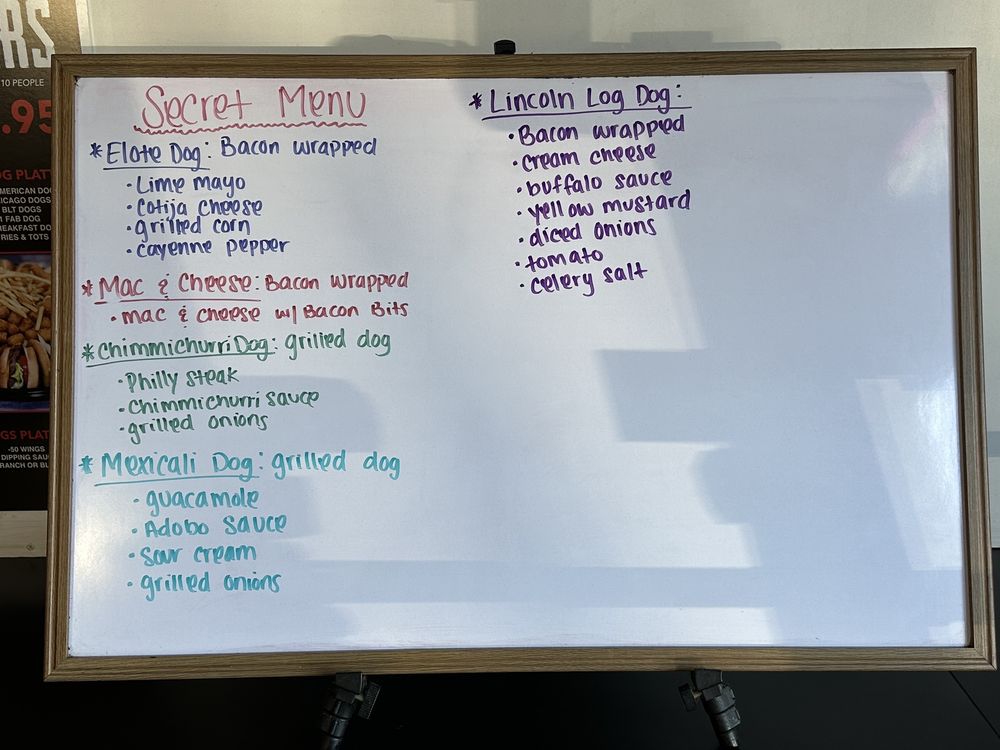 RS
10 PEOPLE
.95
Secret Menu
*Elote Dog: Bacon wrapped
•Lime mayo
•Cotija cheese
•grilled corn
•cayenne pepper
*Mac & Cheese: Bacon wrapped
•mac & cheese w/ Bacon Bits
*Chimmichurri Dog: grilled dog
•Philly steak
•Chimmichurri sauce
•grilled onions
*Mexicali Dog: grilled dog
•guacamole
•Adobo sauce
•Sour cream
•grilled onions
*Lincoln Log Dog:
•Bacon wrapped
•cream cheese
•buffalo sauce
•yellow mustard
•diced onions
•tomato
•celery salt
BLT DOGS
FAB DOG
RIES & TOTS
GS PLAT
-50 WINGS
DIPPING
RANCH OR